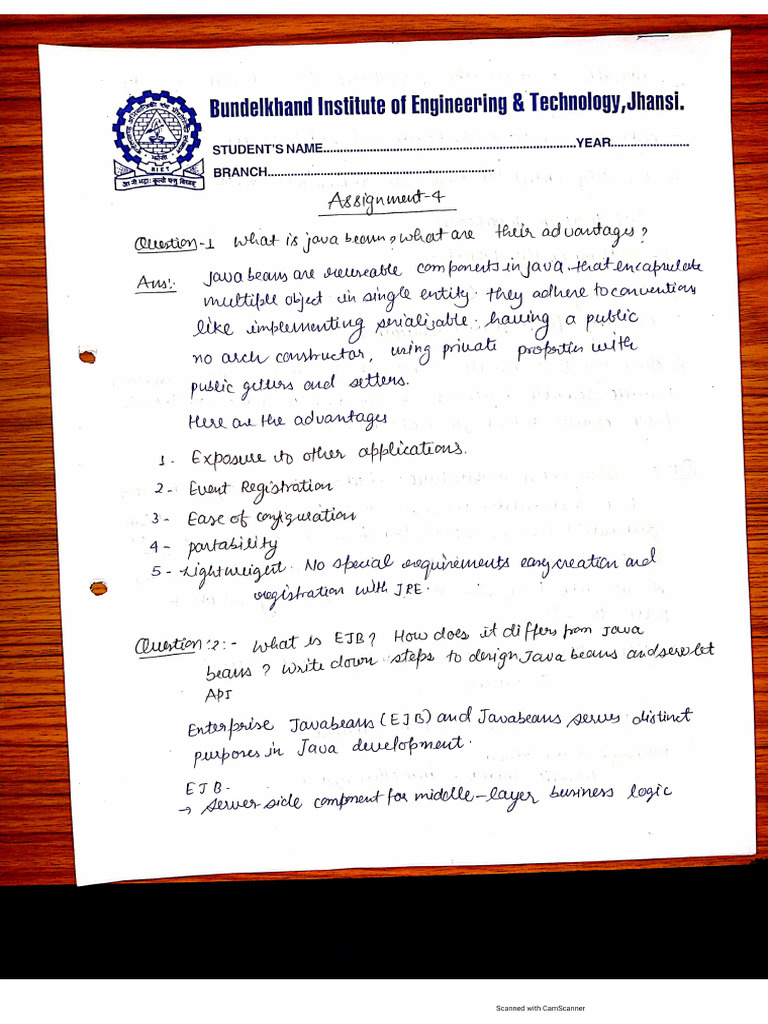 Bundelkhand Institute of Engineering & Technology, Jhansi.
STUDENT'S NAME............................................................................YEAR........................
BRANCH....................................................................
B I E T
Assignment-4
Question-1 What is java beam, what are their advantages?
Ans:- Java beans are reuseable components in java that encapsulate
multiple object in single entity. they adhere to convention
like implementing serializable. having a public
no arch constructor, using private properties with
public getters and setters.
Here are the advantages
1. Exposure to other applications.
2- Event Registration
3- Ease of configuration
4- portability
5- Lightweight. No special requirements easy creation and
registration with JRE.
Question:2:- What is EJB? How does it differs from java
beans? Write down steps to design Java beans and servlet
API
Enterprise Javabeans (EJB) and Javabeans serves distinct
purposes in Java development.
EJB-
→ Server-side component for middle-layer business logic
Scanned with CamScanner